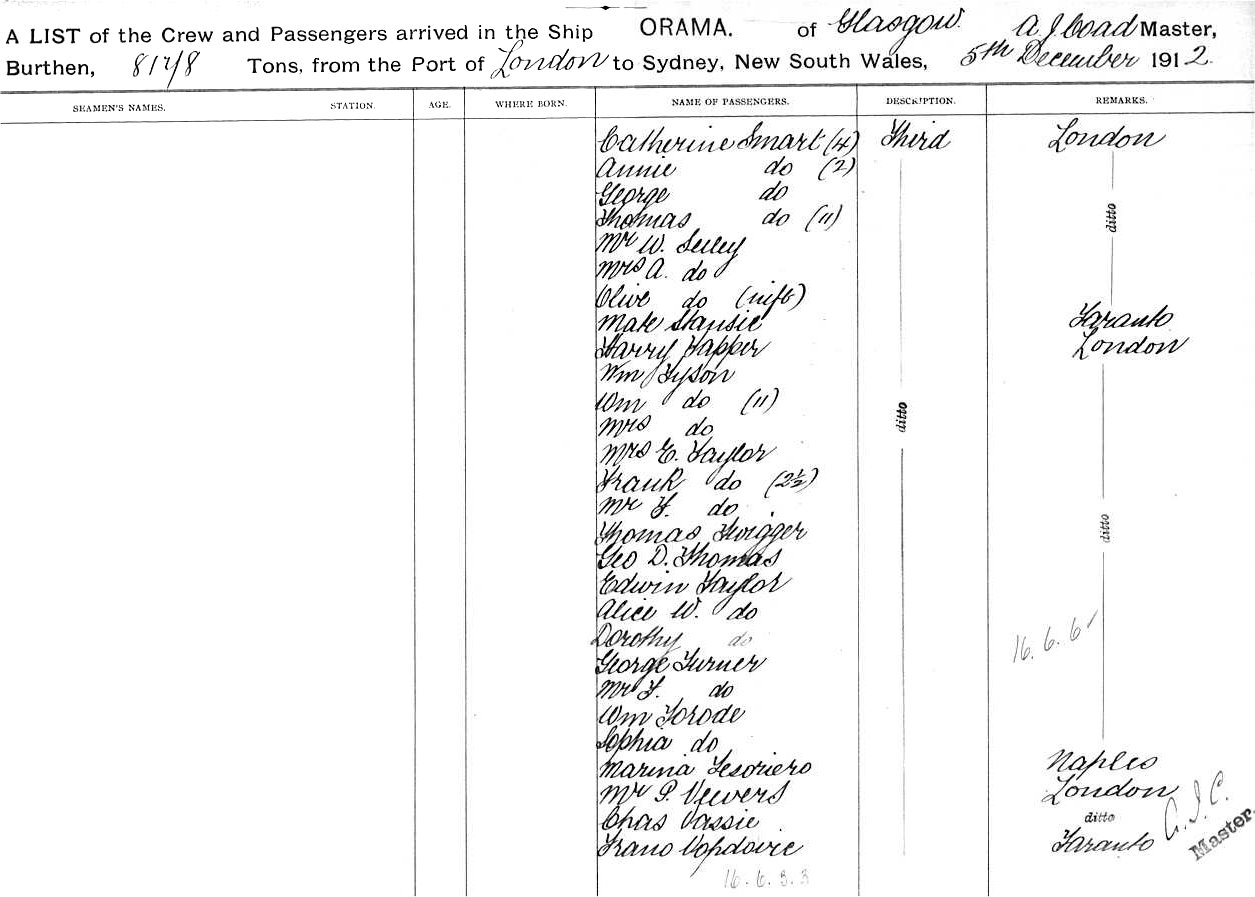 A LIST of the Crew and Passengers arrived in the Ship ORAMA. of Glasgow. A. J. Coad Master,
Burthen, 8178 Tons, from the Port of London to Sydney, New South Wales, 5th December 1912.
SEAMEN'S NAMES. STATION. AGE. WHERE BORN. NAME OF PASSENGERS. DESCRIPTION. REMARKS.
Catherine Smart (4) Third London
Annie do (2)
George do
Thomas do (11) ditto
Mr W. Seeley
Mrs A. do
Olive do (inft)
Mate Stansic Taranto
Harry Tapper London
Wm Tyson
Wm do (11) ditto
Mrs do
Mrs E. Taylor
Frank do (2½)
Mr F. do
Thomas Twigger ditto
Geo D. Thomas
Edwin Taylor
Alice W. do
Dorothy do 16.6.6
George Turner
Mr F. do
Wm Torode
Sophia do
Marina Tesoriero Naples
Mr P. Veevers London
Chas Vassie ditto A.J.C.
Frano Taranto Master.
16.6.3.3